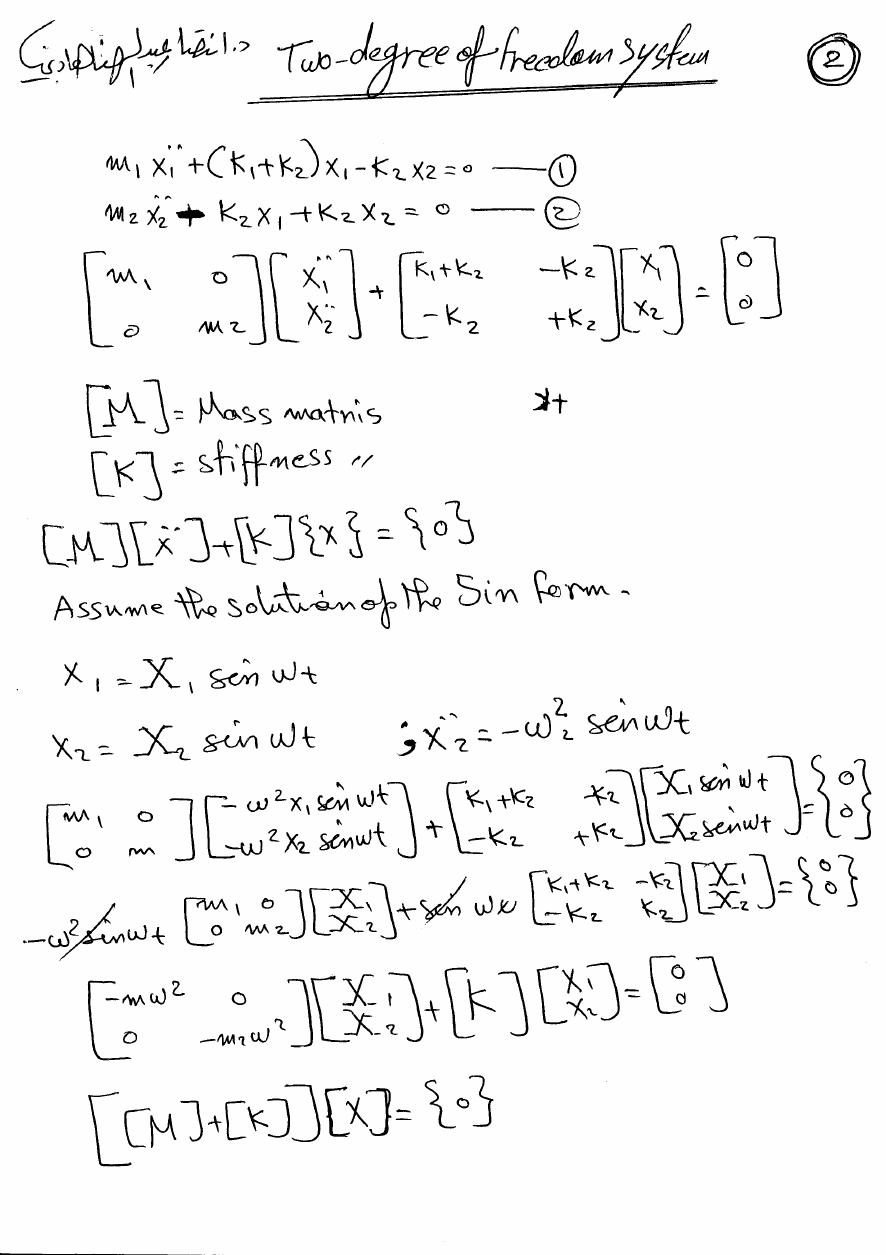 Two-degree of freedom system 2
m₁ẍ₁ + (K₁+K₂)x₁ - K₂x₂ = 0 — ①
m₂ẍ₂ + K₂x₁ + K₂x₂ = 0 — ②
[m₁ 0; 0 m₂][ẍ₁; ẍ₂] + [K₁+K₂ -K₂; -K₂ +K₂][x₁; x₂] = [0; 0]
[M] = Mass matris
[K] = stiffness 〃
[M][ẍ]+[K]{x} = {0}
Assume the solution of the Sin form.
x₁ = X₁ sin ωt
x₂ = X₂ sin ωt ; ẍ₂ = -ω²₂ sin ωt
[m₁ 0; 0 m][-ω²x₁ sin ωt; -ω²x₂ sin ωt] + [K₁+K₂ -K₂; -K₂ +K₂][X₁ sin ωt; X₂ sin ωt] = {0; 0}
-ω² sin ωt [m₁ 0; 0 m₂][X₁; X₂] + sin ωt [K₁+K₂ -K₂; -K₂ K₂][X₁; X₂] = {0; 0}
[-mω² 0; 0 -m₂ω²][X₁; X₂] + [K][X₁; X₂] = [0; 0]
[[M]+[K]][X] = {0}